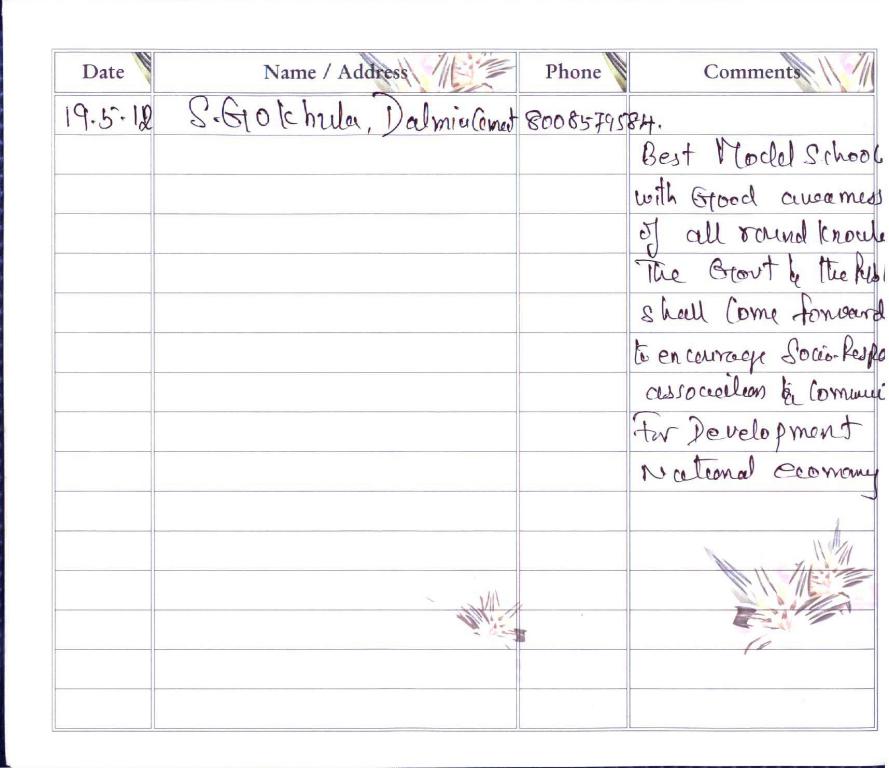 Date Name / Address Phone Comments
19.5.12 S. Gokhula, Dalmia Cement 8008579584.
Best Model School
with Good awarness
of all round Knowle
The Govt & the Publ
shall Come forward
to encourage Socio-Respo
association & Communi
For Development
National economy